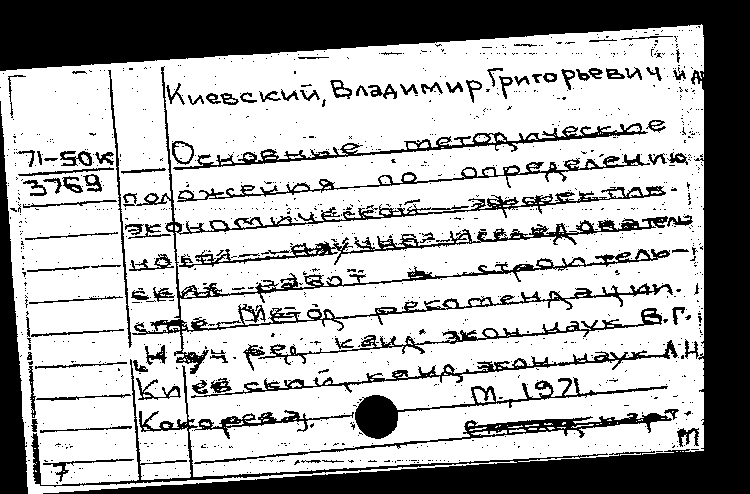 Киевский, Владимир Григорьевич и др
71-50к
3769
Основные методические
положения по определению
экономической эффектив-
ности научно-исследователь
ских работ в строитель-
стве. Метод. рекомендации.
[Науч. ред. канд. экон. наук В.Г.
Киевский, канд. экон. наук А.Н.
Кокорева].
М., 1971.
см. след. карт.
7
м